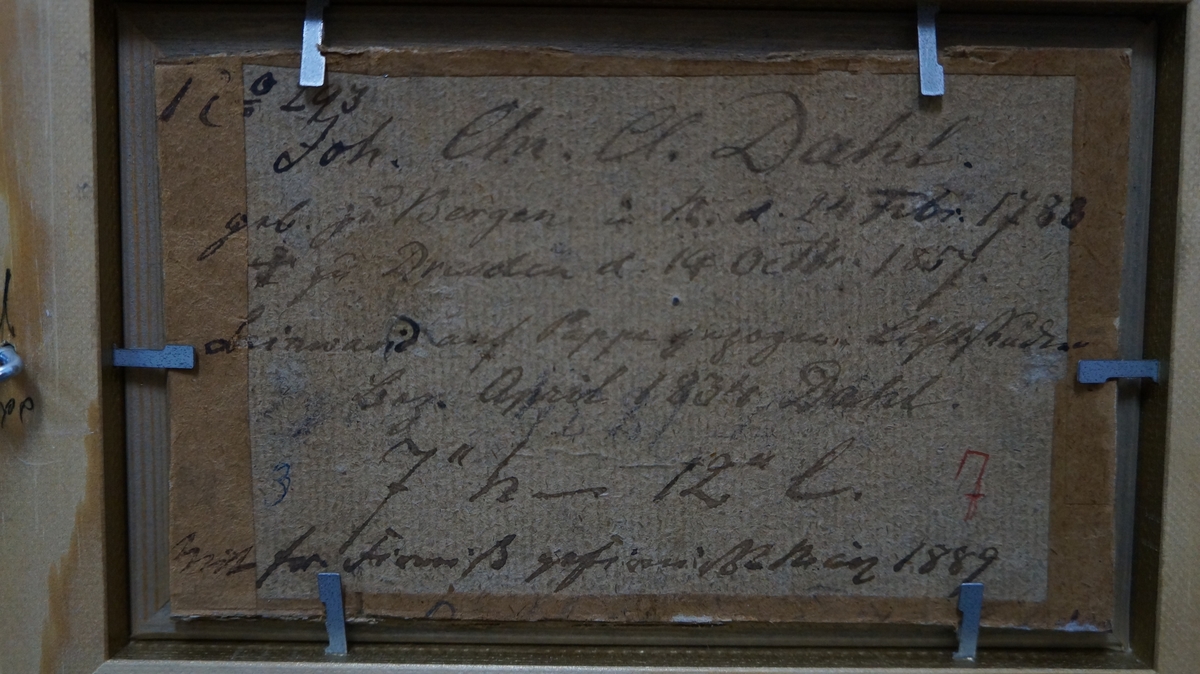 No 293
Joh. Chn. Cl. Dahl.
geb. zu Bergen i N. d. 24 Febr. 1788
† zu Dresden d. 14 Octbr. 1857.
Leinwand auf Pappe gezogen. Luftstudien
bez. April 1834 Dahl.
7" h — 12" l.
3
7
mit fr. Firniß gefirnißt 1889